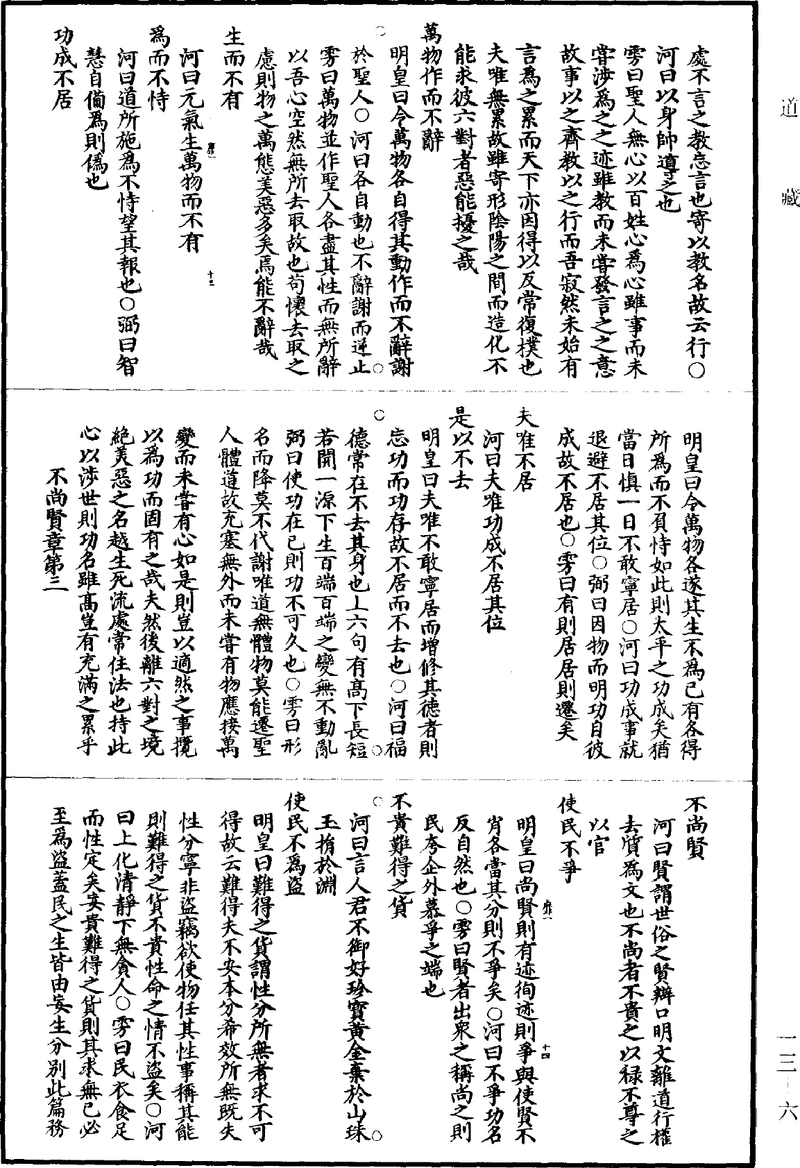 道藏
處不言之教忘言也寄以教名故云行○
河曰以身帥導之也
雱曰聖人無心以百姓心為心雖事而未
甞涉為之之迹雖教而未甞發言之之意
故事以之齊教以之行而吾寂然未始有
言為之累而天下亦因得以反常復樸也
夫唯無累故雖寄形陰陽之間而造化不
能求彼六對者惡能擾之哉
萬物作而不辭
明皇曰令萬物各自得其動作而不辭謝
於聖人○河曰各自動也不辭謝而逆止
雱曰萬物並作聖人各盡其性而無所辭
以吾心空然無所去取故也苟懷去取之
慮則物之萬態美惡多矣焉能不辭哉
生而不有
河曰元氣生萬物而不有
十三
為而不恃
河曰道所施為不恃望其報也○弼曰智
慧自備為則偽也
功成不居
明皇曰令萬物各遂其生不為已有各得
所為而不負恃如此則太平之功成矣猶
當日慎一日不敢寧居○河曰功成事就
退避不居其位○弼曰因物而明功自彼
成故不居也○雱曰有則居居則遷矣
夫唯不居
河曰夫唯功成不居其位
是以不去
明皇曰夫唯不敢寧居而增修其德者則
忘功而功存故不居而不去也○河曰福
德常在不去其身也上六句有高下長短
若開一源下生百端百端之變無不動亂
弼曰使功在已則功不可久也○雱曰形
名而降莫不代謝唯道無體物莫能遷聖
人體道故充塞無外而未甞有物應接萬
變而未甞有心如是則豈以適然之事攬
以為功而固有之哉夫然後離六對之境
絶美惡之名越生死流處常住法也持此
心以涉世則功名雖高豈有充滿之累乎
不尚賢章第三
不尚賢
河曰賢謂世俗之賢辯口明文離道行權
去質為文也不尚者不貴之以禄不尊之
以官
使民不爭
明皇曰尚賢則有迹徇迹則爭興使賢不
十四
肖各當其分則不爭矣○河曰不爭功名
反自然也○雱曰賢者出衆之稱尚之則
民夸企外慕爭之端也
不貴難得之貨
河曰言人君不御好珍寶黃金棄於山珠
玉捐於淵
使民不為盜
明皇曰難得之貨謂性分所無者求不可
得故云難得夫不安本分希效所無既失
性分寧非盜竊欲使物任其性事稱其能
則難得之貨不貴性命之情不盜矣○河
曰上化清靜下無貪人○雱曰民衣食足
而性定矣妄貴難得之貨則其求無已必
至為盜蓋民之生皆由妄生分别此篇務
一三-六